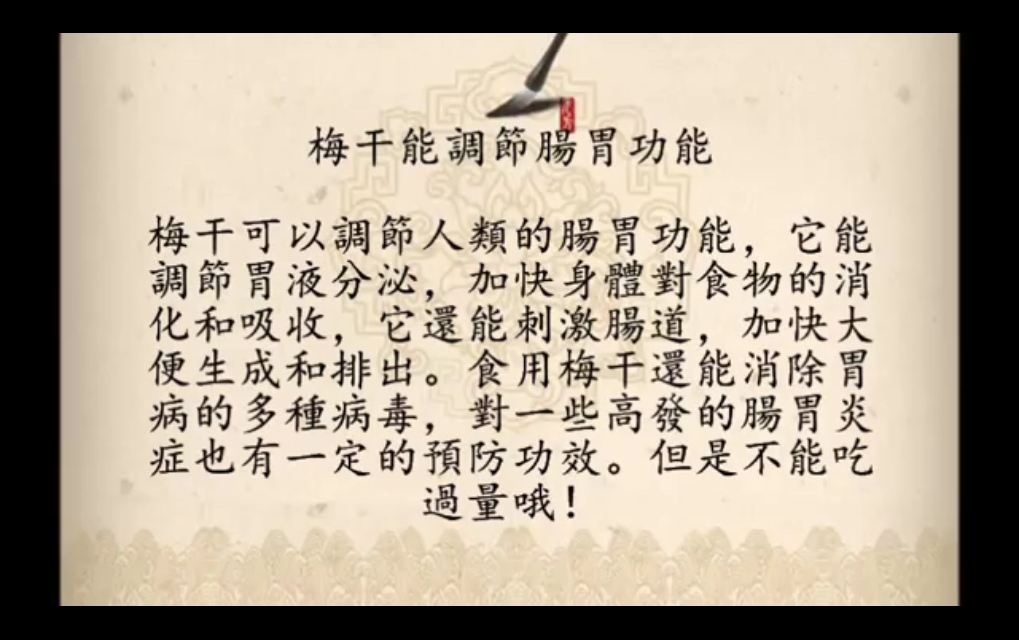 梅干能調節腸胃功能
梅干可以調節人類的腸胃功能，它能
調節胃液分泌，加快身體對食物的消
化和吸收，它還能刺激腸道，加快大
便生成和排出。食用梅干還能消除胃
病的多種病毒，對一些高發的腸胃炎
症也有一定的預防功效。但是不能吃
過量哦！